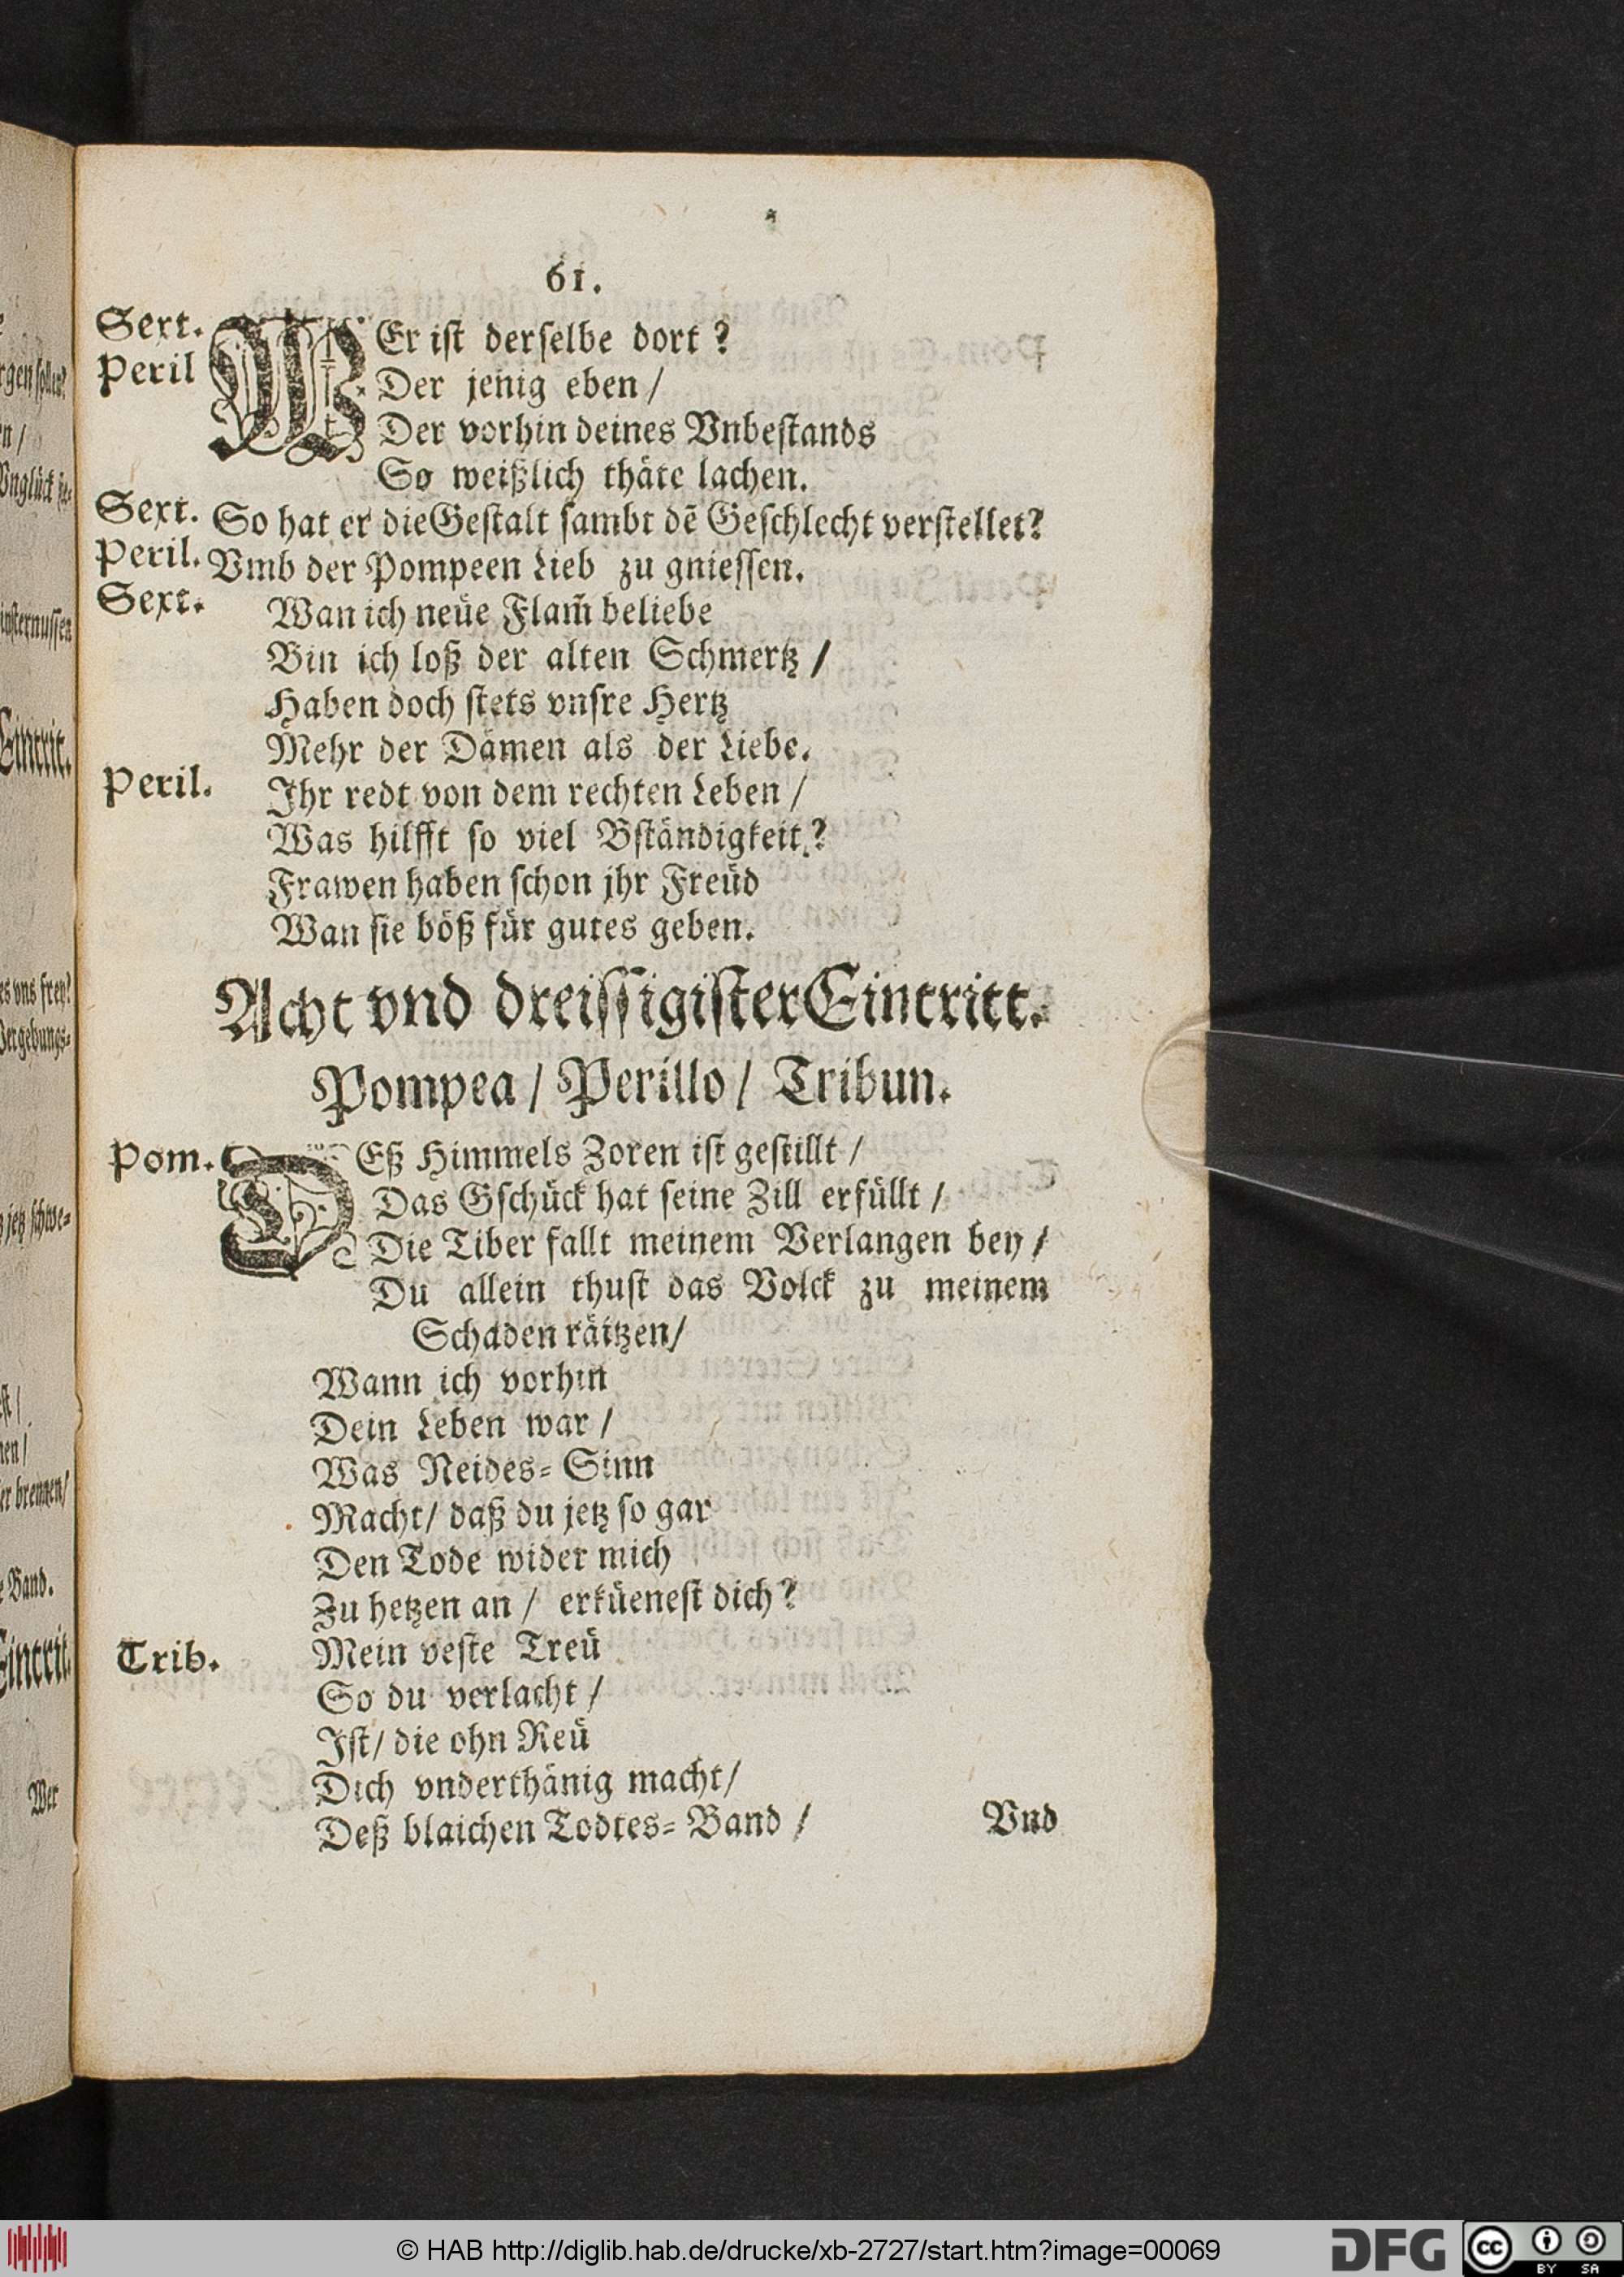 61.
Sext. WEr ist derselbe dort?
Peril Der jenig eben /
Der vorhin deines Vnbestands
So weißlich thäte lachen.
Sext. So hat er die Gestalt sambt dē Geschlecht verstellet?
Peril. Vmb der Pompeen Lieb zu gniessen.
Sext. Wan ich neüe Flam̃ beliebe
Bin ich loß der alten Schmertz /
Haben doch stets vnsre Hertz
Mehr der Dämen als der Liebe.
Peril. Ihr redt von dem rechten Leben /
Was hilfft so viel Bständigkeit?
Frawen haben schon jhr Freüd
Wan sie böß für gutes geben.
Acht vnd dreissigister Eintritt.
Pompea / Perillo / Tribun.
Pom. DEß Himmels Zoren ist gestillt /
Das Gschück hat seine Zill erfüllt /
Die Tiber fallt meinem Verlangen bey /
Du allein thust das Volck zu meinem
Schaden räitzen /
Wann ich vorhin
Dein Leben war /
Was Neides-Sinn
Macht / daß du jetz so gar
Den Tode wider mich
Zu hetzen an / erküenest dich?
Trib. Mein veste Treü
So du verlacht /
Ist / die ohn Reü
Dich vnderthänig macht /
Deß blaichen Todtes-Band /
Vnd
© HAB http://diglib.hab.de/drucke/xb-2727/start.htm?image=00069
DFG
cc
BY SA